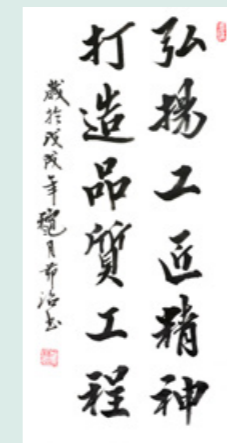 弘揚工匠精神
打造品質工程
歲於戊戌年